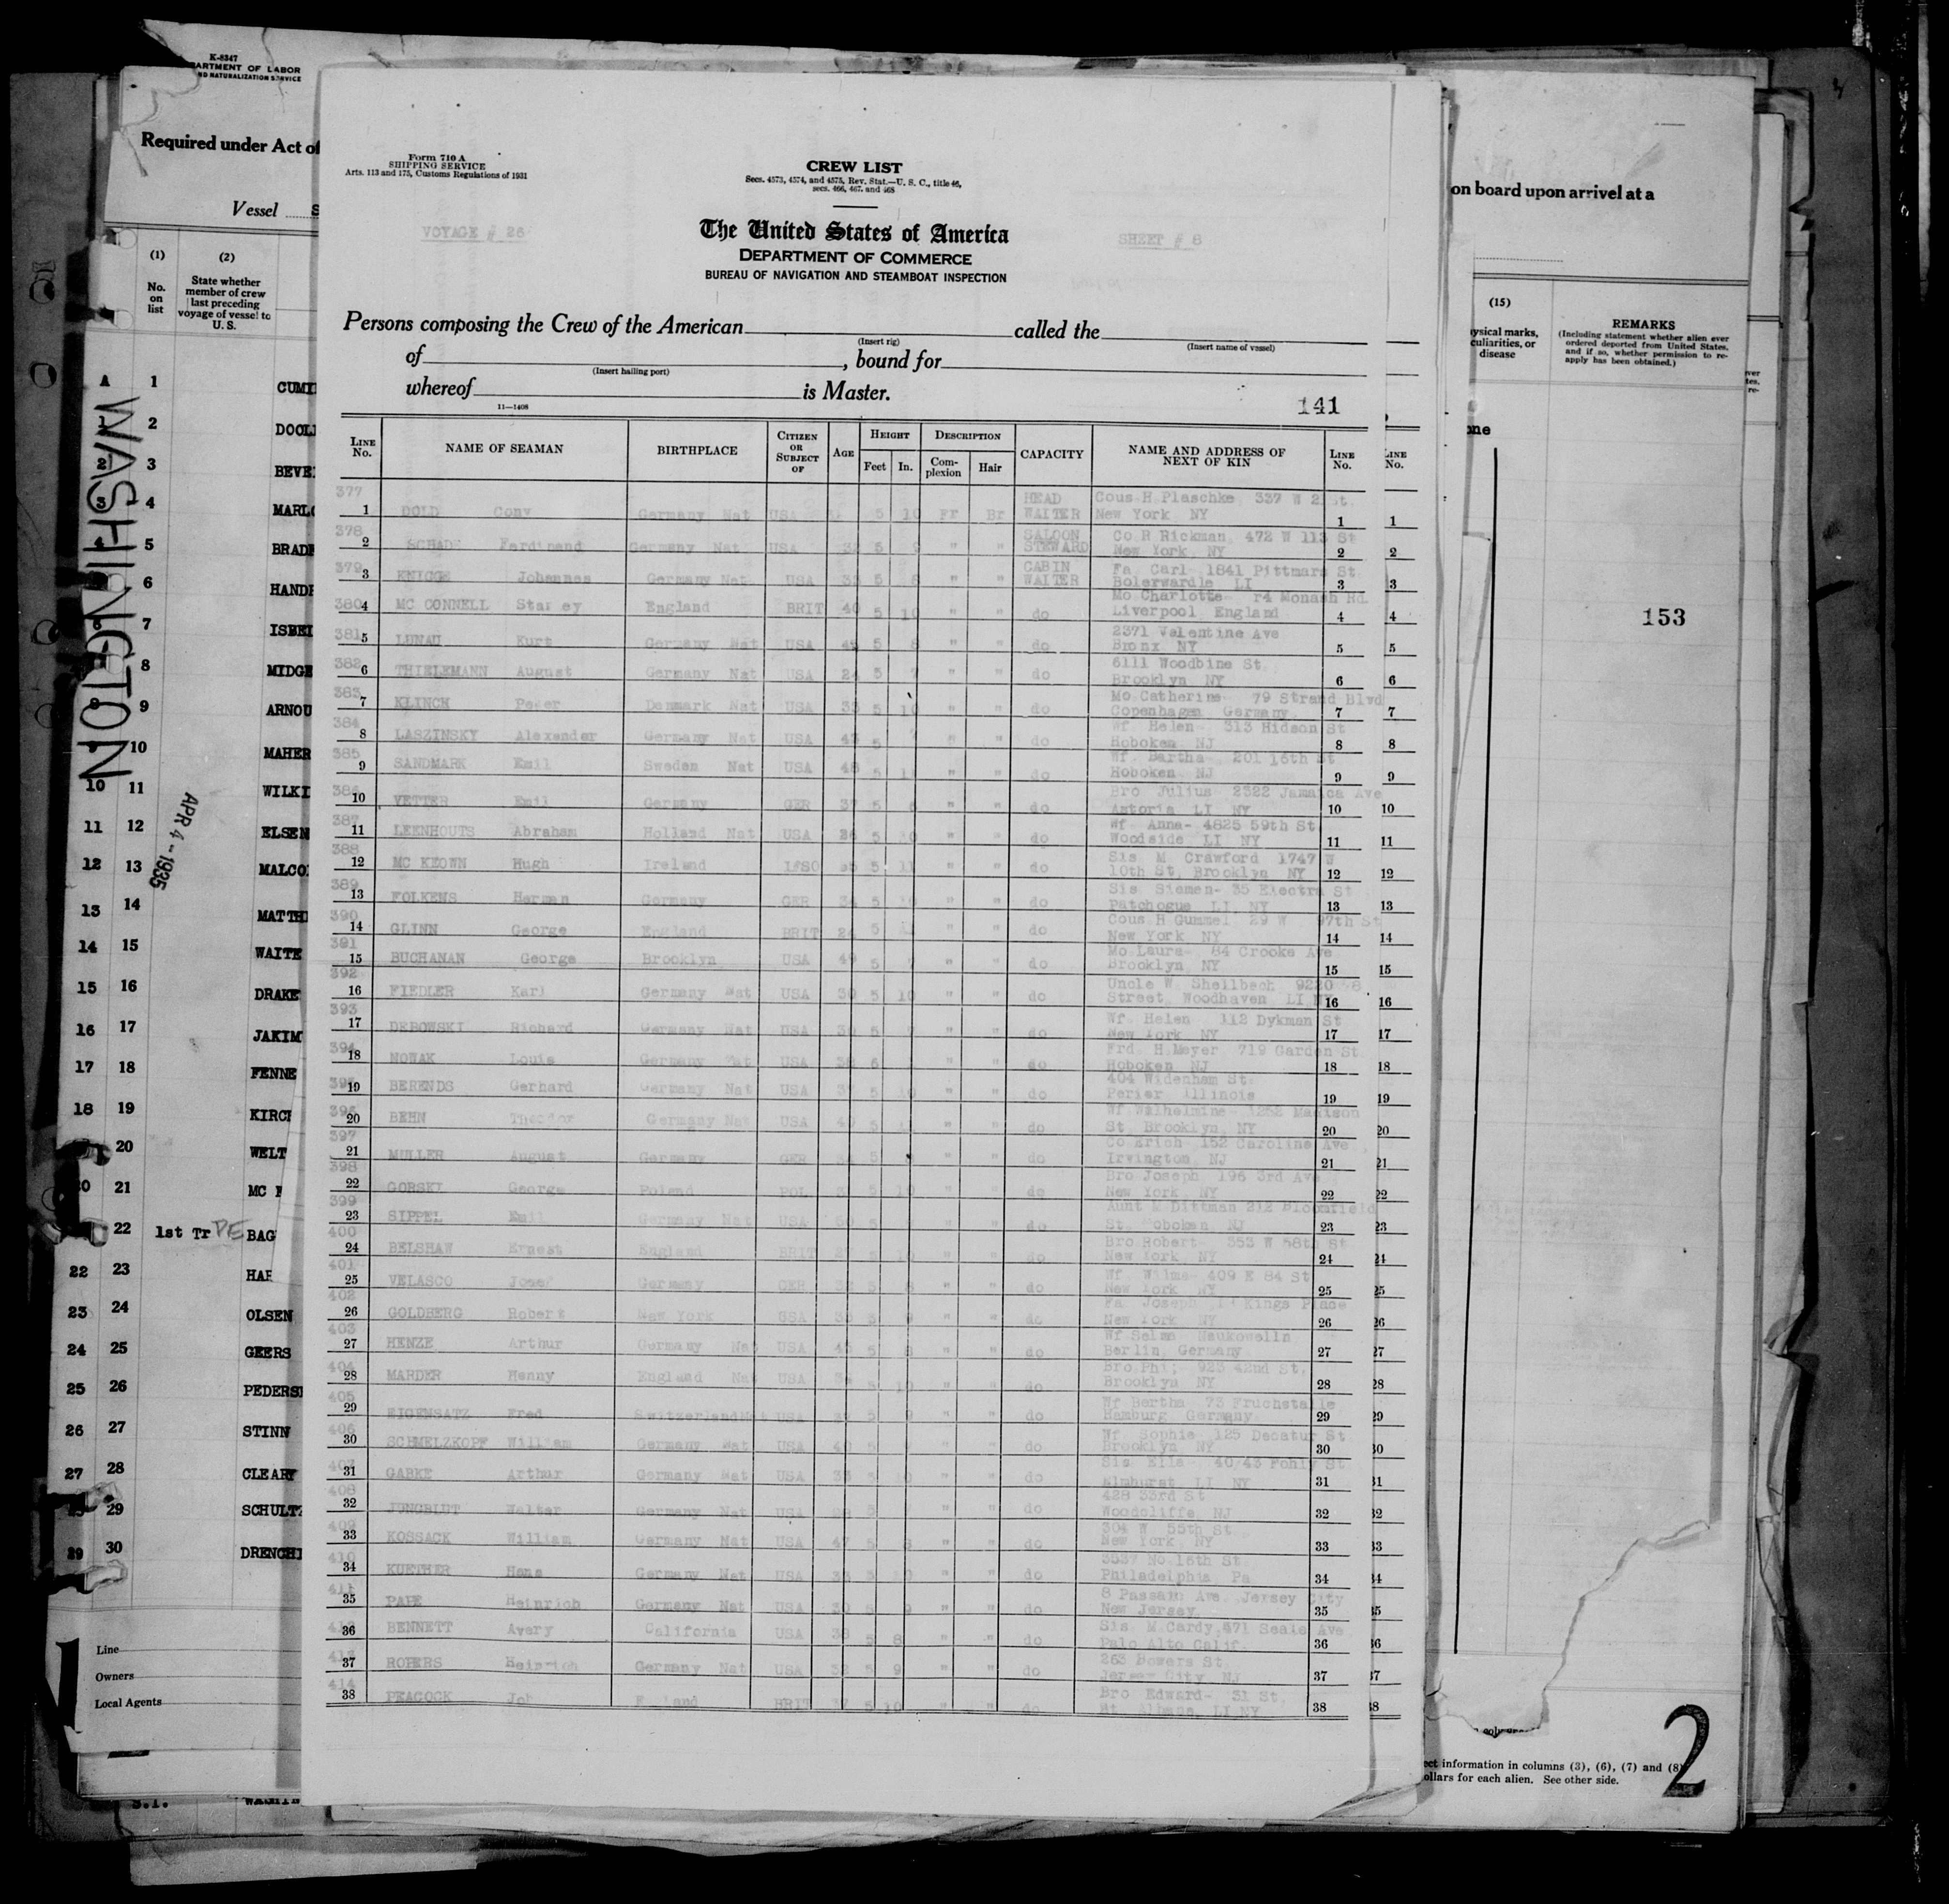 K-8347
ARTMENT OF LABOR
ND NATURALIZATION SERVICE
Required under Act of
Vessel
(1) (2)
No. on list
State whether member of crew last preceding voyage of vessel to U. S.
A 1 CUMI
1 2 DOOL
2 3 BEVE
3 4 MARLO
4 5 BRADF
6 HANDF
7 ISBEI
8 MIDGE
8 9 ARNOU
10 MAHER
10 11 WILKI
11 12 ELSEN
12 13 MALCO
13 14 MATTH
14 15 WAITE
15 16 DRAKE
16 17 JAKIM
17 18 FENNE
18 19 KIRCH
20 WELT
20 21 MC
22 1st Tr PE BAG
22 23 HAR
23 24 OLSEN
24 25 GEERS
25 26 PEDERS
26 27 STINN
27 28 CLEARY
29 SCHULTZ
29 30 DRENCH
WASHINGTON
APR 4-1935
Line
Owners
Local Agents
Form 710 A
SHIPPING SERVICE
Arts. 113 and 175, Customs Regulations of 1931
CREW LIST
Secs. 4573, 4574, and 4575, Rev. Stat.—U. S. C., title 46,
secs. 466, 467, and 468
VOYAGE # 26
The United States of America
SHEET # 8
DEPARTMENT OF COMMERCE
BUREAU OF NAVIGATION AND STEAMBOAT INSPECTION
Persons composing the Crew of the American called the
(Insert rig) (Insert name of vessel)
of , bound for
(Insert hailing port)
whereof is Master.
11—1408
141
LINE No. NAME OF SEAMAN BIRTHPLACE CITIZEN OR SUBJECT OF AGE HEIGHT Feet In. DESCRIPTION Complexion Hair CAPACITY NAME AND ADDRESS OF NEXT OF KIN LINE No.
377 HEAD Cous H Plaschke 337 W 21 St.
1 DOLD Cony Germany Nat USA 5 10 Fr Br WAITER New York NY 1
378 SALOON Co R Rickman, 472 W 113 St
2 SCHADE Ferdinand Germany Nat USA 5 9 " " STEWARD New York, NY 2
379 CABIN Fa Carl- 1841 Pittmars St
3 KNIGGE Johannes Germany Nat USA 5 8 " " WAITER LI 3
380 Mo Charlotte r4 Monash Rd.
4 MC CONNELL England BRIT 40 5 10 " " do Liverpool England 4
381 2371 Valentine Ave
5 LUNAU Kurt Germany Nat USA 45 5 8 " " do Bronx NY 5
382 6111 Woodbine St
6 THIELEMANN August Germany Nat USA 5 " " do Brooklyn NY 6
383 Mo Catherine- 79 Strand Blvd
7 KLINCK Peter Denmark Nat USA 5 10 " " do Copenhagen Germany 7
384 Wf. Helen- 313 Hidson St
8 LASZINSKY Alexander Germany Nat USA 5 " " do Hoboken NJ 8
385 Wf. Bertha- 201 16th St
9 SANDMARK Emil Sweden Nat USA 48 5 11 " " do Hoboken NJ 9
386 Bro Julius- 2322 Jamaica Ave
10 VETTER Emil Germany GER 37 5 " " do Astoria LI NY 10
387 Wf- Anna- 4825 59th St
11 LEENHOUTS Abraham Holland Nat USA 5 10 " " do Woodside LI NY 11
388 Sis M Crawford 1747 W
12 MC KEOWN Hugh Ireland 5 11 " " do 10th St, Brooklyn NY 12
389 Sis Siemen- 35 Electra St
13 FOLKENS Herman Germany GER 5 10 " " do Patchogue LI NY 13
390 Cous H Gummel 29 W 97th St
14 GLINN George England BRIT 5 " " do New York NY 14
391 Mo Laura- 84 Crooke Ave
15 BUCHANAN George Brooklyn USA 49 5 7 " " do Brooklyn NY 15
392 Uncle W Shellbech 9220
16 FIEDLER Karl Germany Nat USA 30 5 10 " " do Street, Woodhaven LI 16
393 Wf. Helen 112 Dykman St
17 DEBOWSKI Richard Germany Nat USA 5 " " do New York NY 17
394 Frd. H.Meyer 719 Garden St
18 NOWAK Louis Germany Nat USA 38 6 " " do Hoboken NJ 18
395 404 Widenham St
19 BERENDS Gerhard Germany Nat USA 37 5 10 " " do Illinois 19
396 Wf Wilhelmine- 1252 Madison
20 BEHN Theodor Germany Nat USA 5 " " do St, Brooklyn, NY 20
397 Co Erich 152 Caroline Ave
21 MULLER August Germany GER 5 " " do Irvington, NJ 21
398 Bro Joseph 196 3rd Ave
22 GORSKI George Poland POL 5 10 " " do New York NY 22
399 Aunt M Dittman 212 Bloomfield
23 SIPPEL Emil Germany Nat USA 5 " " do St. Hoboken, NJ 23
400 Bro Robert- 353 W 58th St
24 BELSHAW Ernest England BRIT 5 10 " " do New York NY 24
401 Wf. Wilma- 409 E 84 St
25 VELASCO Josef Germany GER 5 8 " " do New York NY 25
402 Fa Joseph Kings Place
26 GOLDBERG Robert New York USA 9 " " do New York NY 26
403 Wf Selma Neukowelln
27 HENZE Arthur Germany Nat USA 5 8 " " do Berlin Germany 27
404 Bro Phi; 923 42nd St,
28 MARDER Henny England Nat USA 10 " " do Brooklyn NY 28
405 Wf Bertha 73 Fruchstalle
29 EIGENSATZ Fred Switzerland Nat USA 5 9 " " do Hamburg Germany 29
406 Wf Sophie 125 Decatur St
30 SCHMELZKOPF William Germany Nat USA 40 5 " " do Brooklyn NY 30
407 Sis Ella- 40/43 Pohly St
31 GABKE Arthur Germany Nat USA 5 10 " " do Elmhurst LI NY 31
408 428 33rd St
32 JUNGBLUT Walter Germany Nat USA 5 " " do Woodcliffe NJ 32
409 304 W 55th St.
33 KOSSACK William Germany Nat USA 47 5 8 " " do New York, NY 33
410 3537 No 16th St
34 KUETHER Hans Germany Nat USA 5 10 " " do Philadelphia Pa 34
411 8 Passaic Ave Jersey City
35 PAPE Heinrich Germany Nat USA 30 5 9 " " do New Jersey 35
412 Sis M.Cardy,471 Seale Ave
36 BENNETT Avery California USA 38 5 8 " " do Palo Alto Calif. 36
413 263 Bowers St.
37 ROPERS Heinrich Germany Nat USA 5 9 " " do Jersey City NJ 37
414 Bro Edward- 31 St,
38 PEACOCK England BRIT 37 5 10 " " do St. Albans, LI NY 38
on board upon arrival at a
(15)
ysical marks, culiarities, or disease
REMARKS
(Including statement whether alien ever ordered deported from United States, and if so, whether permission to reapply has been obtained.)
one
153
ect information in columns (3), (6), (7) and (8)
ollars for each alien. See other side.
2